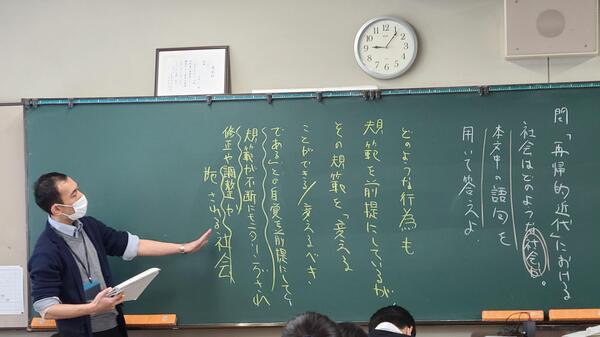 問「再帰的近代」における
社会はどのような社会か。
本文中の語句を
用いて答えよ。
どのような行為も
規範を前提にしているが
その規範を「変える
ことができる/変えるべき
である」との自覚を前提にして、
規範が不断にモニタリングされ
修正や調整が
施される社会